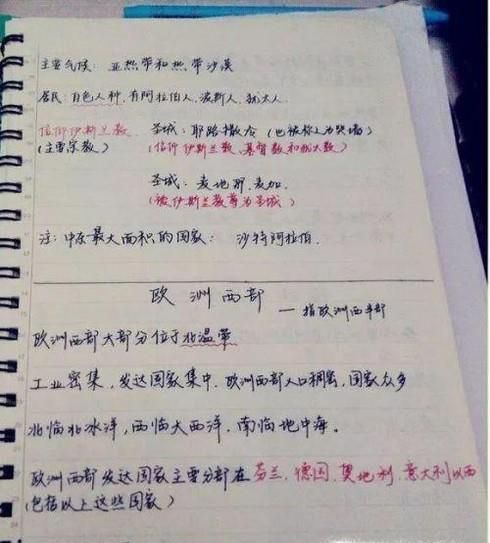 主要气候：亚热带和热带沙漠
居民：白色人种，有阿拉伯人，波斯人，犹太人。
信仰伊斯兰教 圣城：耶路撒冷（也被称为哭墙）
（主要宗教） （信仰伊斯兰教，基督教和犹太教）
圣城：麦地那，麦加。
（被伊斯兰教尊为圣城）
注：中东最大面积的国家：沙特阿拉伯。
欧洲西部
—指欧洲西半部
欧洲西部大部分位于北温带
工业密集，发达国家集中，欧洲西部人口稠密，国家众多
北临北冰洋，西临大西洋，南临地中海。
欧洲西部发达国家主要分部在芬兰，德国，奥地利，意大利以西
（包括以上这些国家）